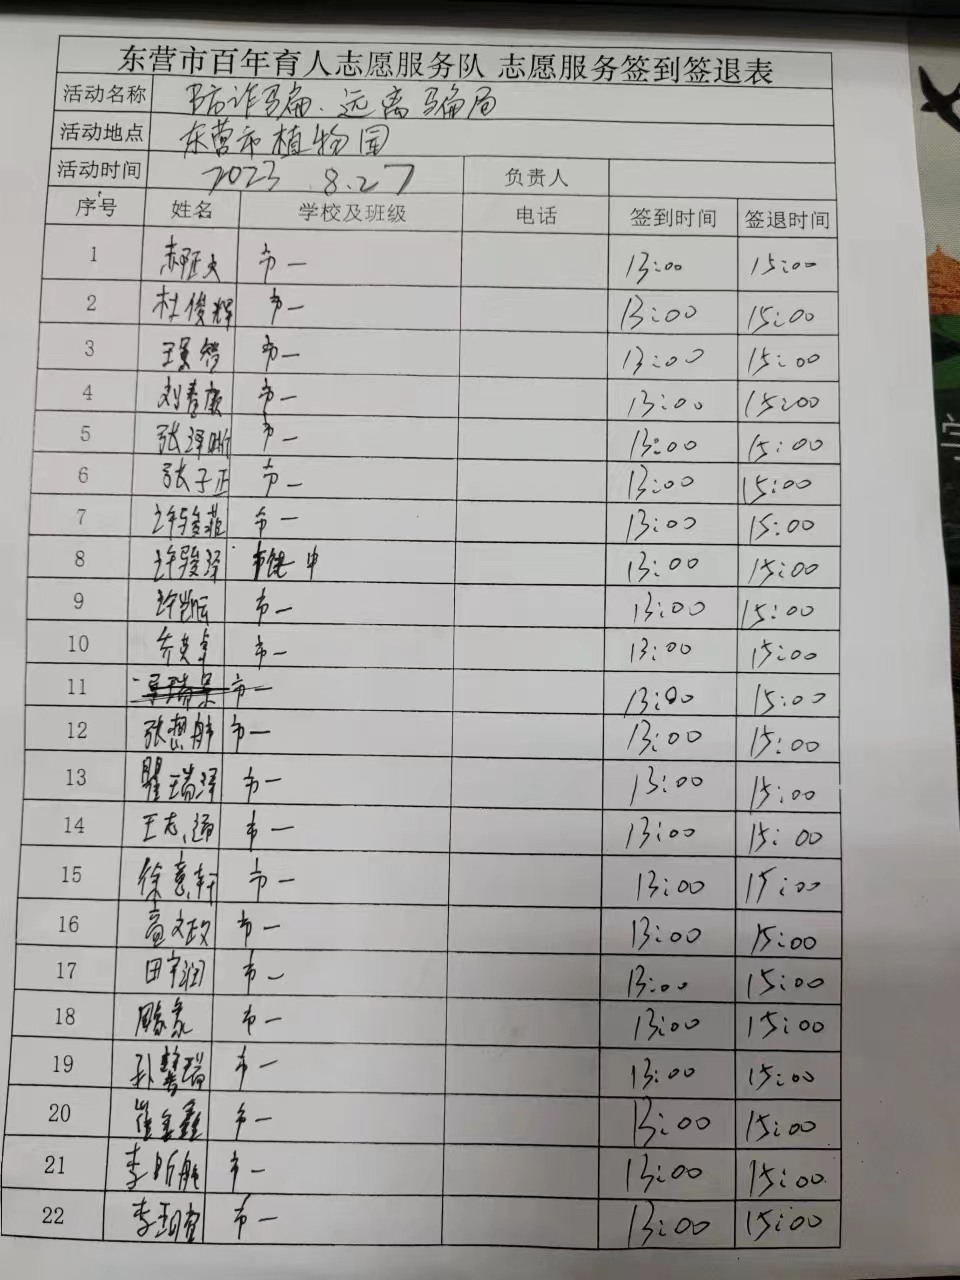 东营市百年育人志愿服务队 志愿服务签到签退表
活动名称 防诈骗、远离骗局
活动地点 东营市植物园
活动时间 2023.8.27 负责人
序号 姓名 学校及班级 电话 签到时间 签退时间
1 市一 13:00 15:00
2 杜俊辉 市一 13:00 15:00
3 市一 13:00 15:00
4 刘春广 市一 13:00 15:00
5 张泽 市一 13:00 15:00
6 张子正 市一 13:00 15:00
7 市一 13:00 15:00
8 许骏泽 中 13:00 15:00
9 许凯 市一 13:00 15:00
10 乔英卓 市一 13:00 15:00
11 市一 13:00 15:00
12 张 市一 13:00 15:00
13 瞿瑞泽 市一 13:00 15:00
14 王志通 市一 13:00 15:00
15 徐意轩 市一 13:00 15:00
16 高文政 市一 13:00 15:00
17 田宇润 市一 13:00 15:00
18 市一 13:00 15:00
19 孙 瑞 市一 13:00 15:00
20 崔金鑫 市一 13:00 15:00
21 李昕航 市一 13:00 15:00
22 李 市一 13:00 15:00